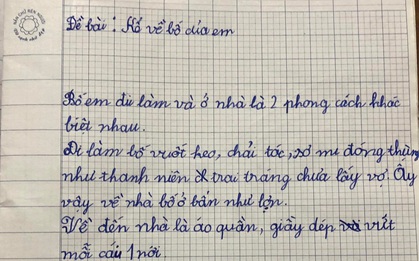 Đề bài: Kể về bố của em
Bố em đi làm và ở nhà là 2 phong cách khác
biệt nhau.
Đi làm bố vuốt keo, chải tóc, sơ mi đóng thùng
như thanh niên & trai tráng chưa lấy vợ. Ấy
vậy về nhà bố ở bẩn như lợn.
Về đến nhà là áo quần, giầy dép vứt
mỗi cái 1 nơi.